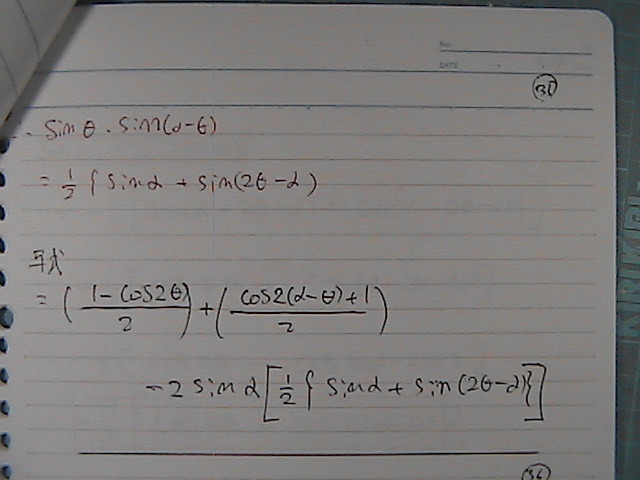 No.
DATE
31
sinθ・sin(α-θ)
= 1/2 { sinα + sin(2θ-α)
与式
= ( (1-cos2θ)/2 ) + ( (cos2(α-θ)+1)/2 )
-2 sinα [ 1/2 { sinα + sin(2θ-α) } ]
36